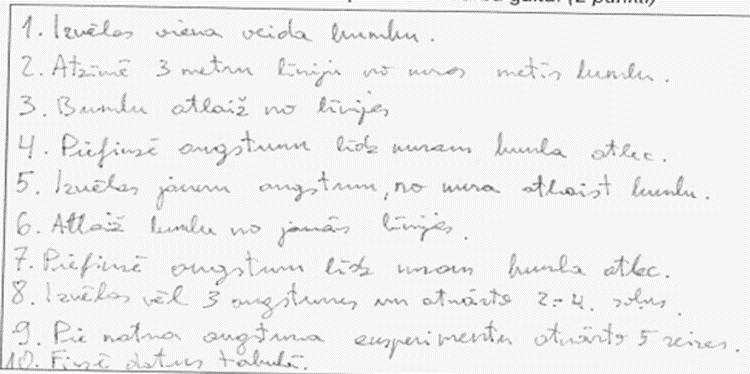 (2 punkti)
1. Izvēlas viena veida bumbu.
2. Atzīmē 3 metru līniju no kuras metīs bumbu.
3. Bumbu atlaiž no līnijas
4. Piefiksē augstumu līdz kuram bumba atlec.
5. Izvēlas jaunu augstumu, no kura atlaist bumbu.
6. Atlaiž bumbu no jaunās līnijas.
7. Piefiksē augstumu līdz kuram bumba atlec.
8. Izvēlas vēl 3 augstumus un atkārto 2.-4. soļus.
9. Pie katra augstuma eksperimentu atkārto 5 reizes.
10. Fiksē datus tabulā.